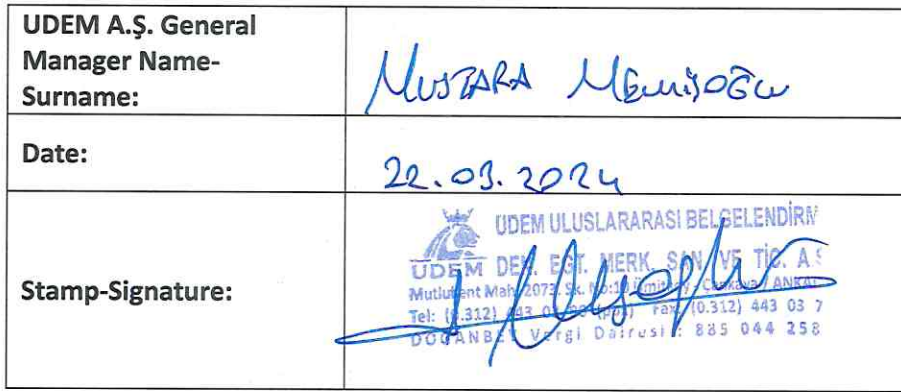 UDEM A.Ş. General
Manager Name-
Surname:
MUSTAFA MEMİŞOĞLU
Date:
22.03.2024
Stamp-Signature:
UDEM ULUSLARARASI BELGELENDİRM
UDEM DEN. EĞT. MERK. SAN. VE TİC. A.Ş
Mutlukent Mah. 2073. Sk. No:10 Ümitköy - Çankaya / ANKA
Tel: (0.312) 443 03 Fax: (0.312) 443 03 7
DOĞANBEY Vergi Dairesi : 885 044 258